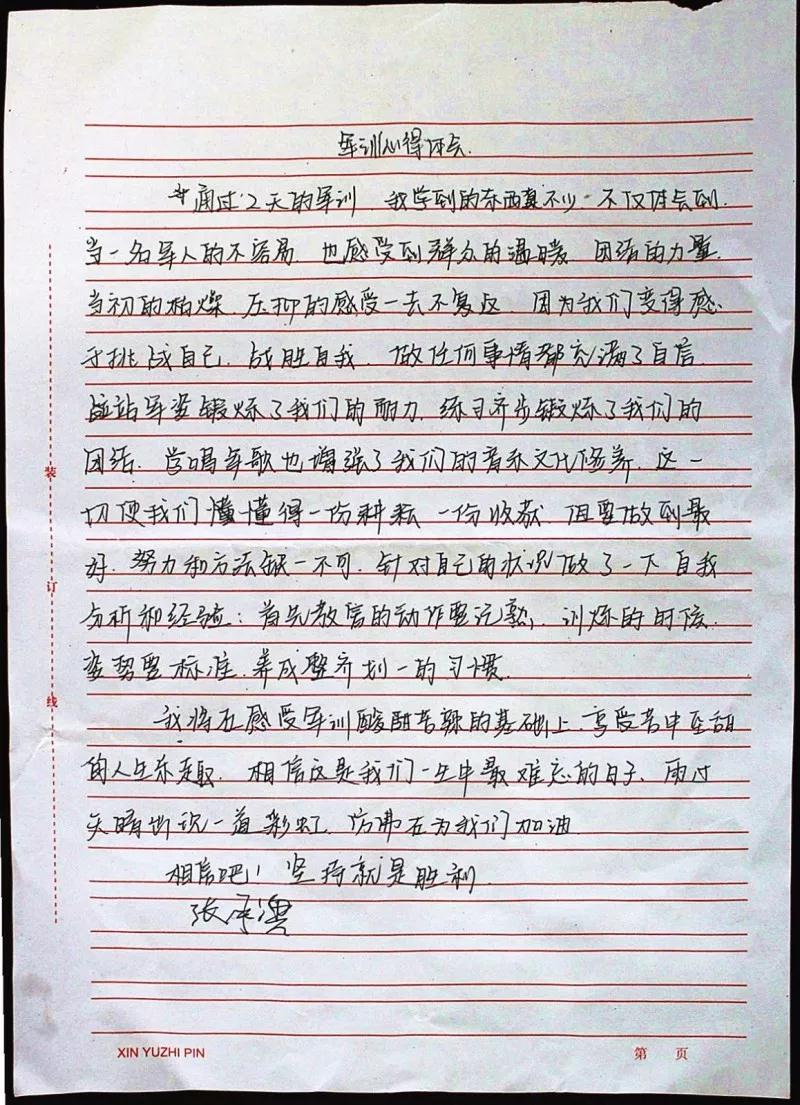 军训心得体会
通过12天的军训 我学到的东西真不少 不仅体会到
当一名军人的不容易 也感受到群众的温暖 团结的力量
当初的枯燥 压抑的感受一去不复返 因为我们变得感
于挑战自己 战胜自我 做任何事情都充满了自信
站军姿锻炼了我们的耐力 练习齐步锻炼了我们的
团结 学唱军歌也增强了我们的音乐文化修养 这一
切使我们懂懂得一份耕耘 一份收获 但要做到最
好 努力和方法缺一不可 针对自己的状况做了一下自我
分析和经验:首先教官的动作要记熟, 训炼的时候
姿势要标准 养成整齐划一的习惯
我将在感受军训酸甜苦辣的基础上 享受苦中至甜
的人生乐趣 相信这是我们一生中最难忘的日子 雨过
天晴出现一道彩虹 仿佛在为我们加油
相信吧! 坚持就是胜利
张
装
订
线
XIN YUZHI PIN
第 页